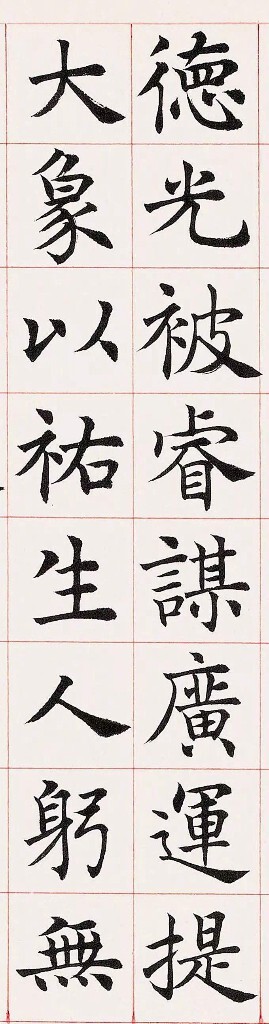 德光被睿謀廣運提
大象以祐生人躬無